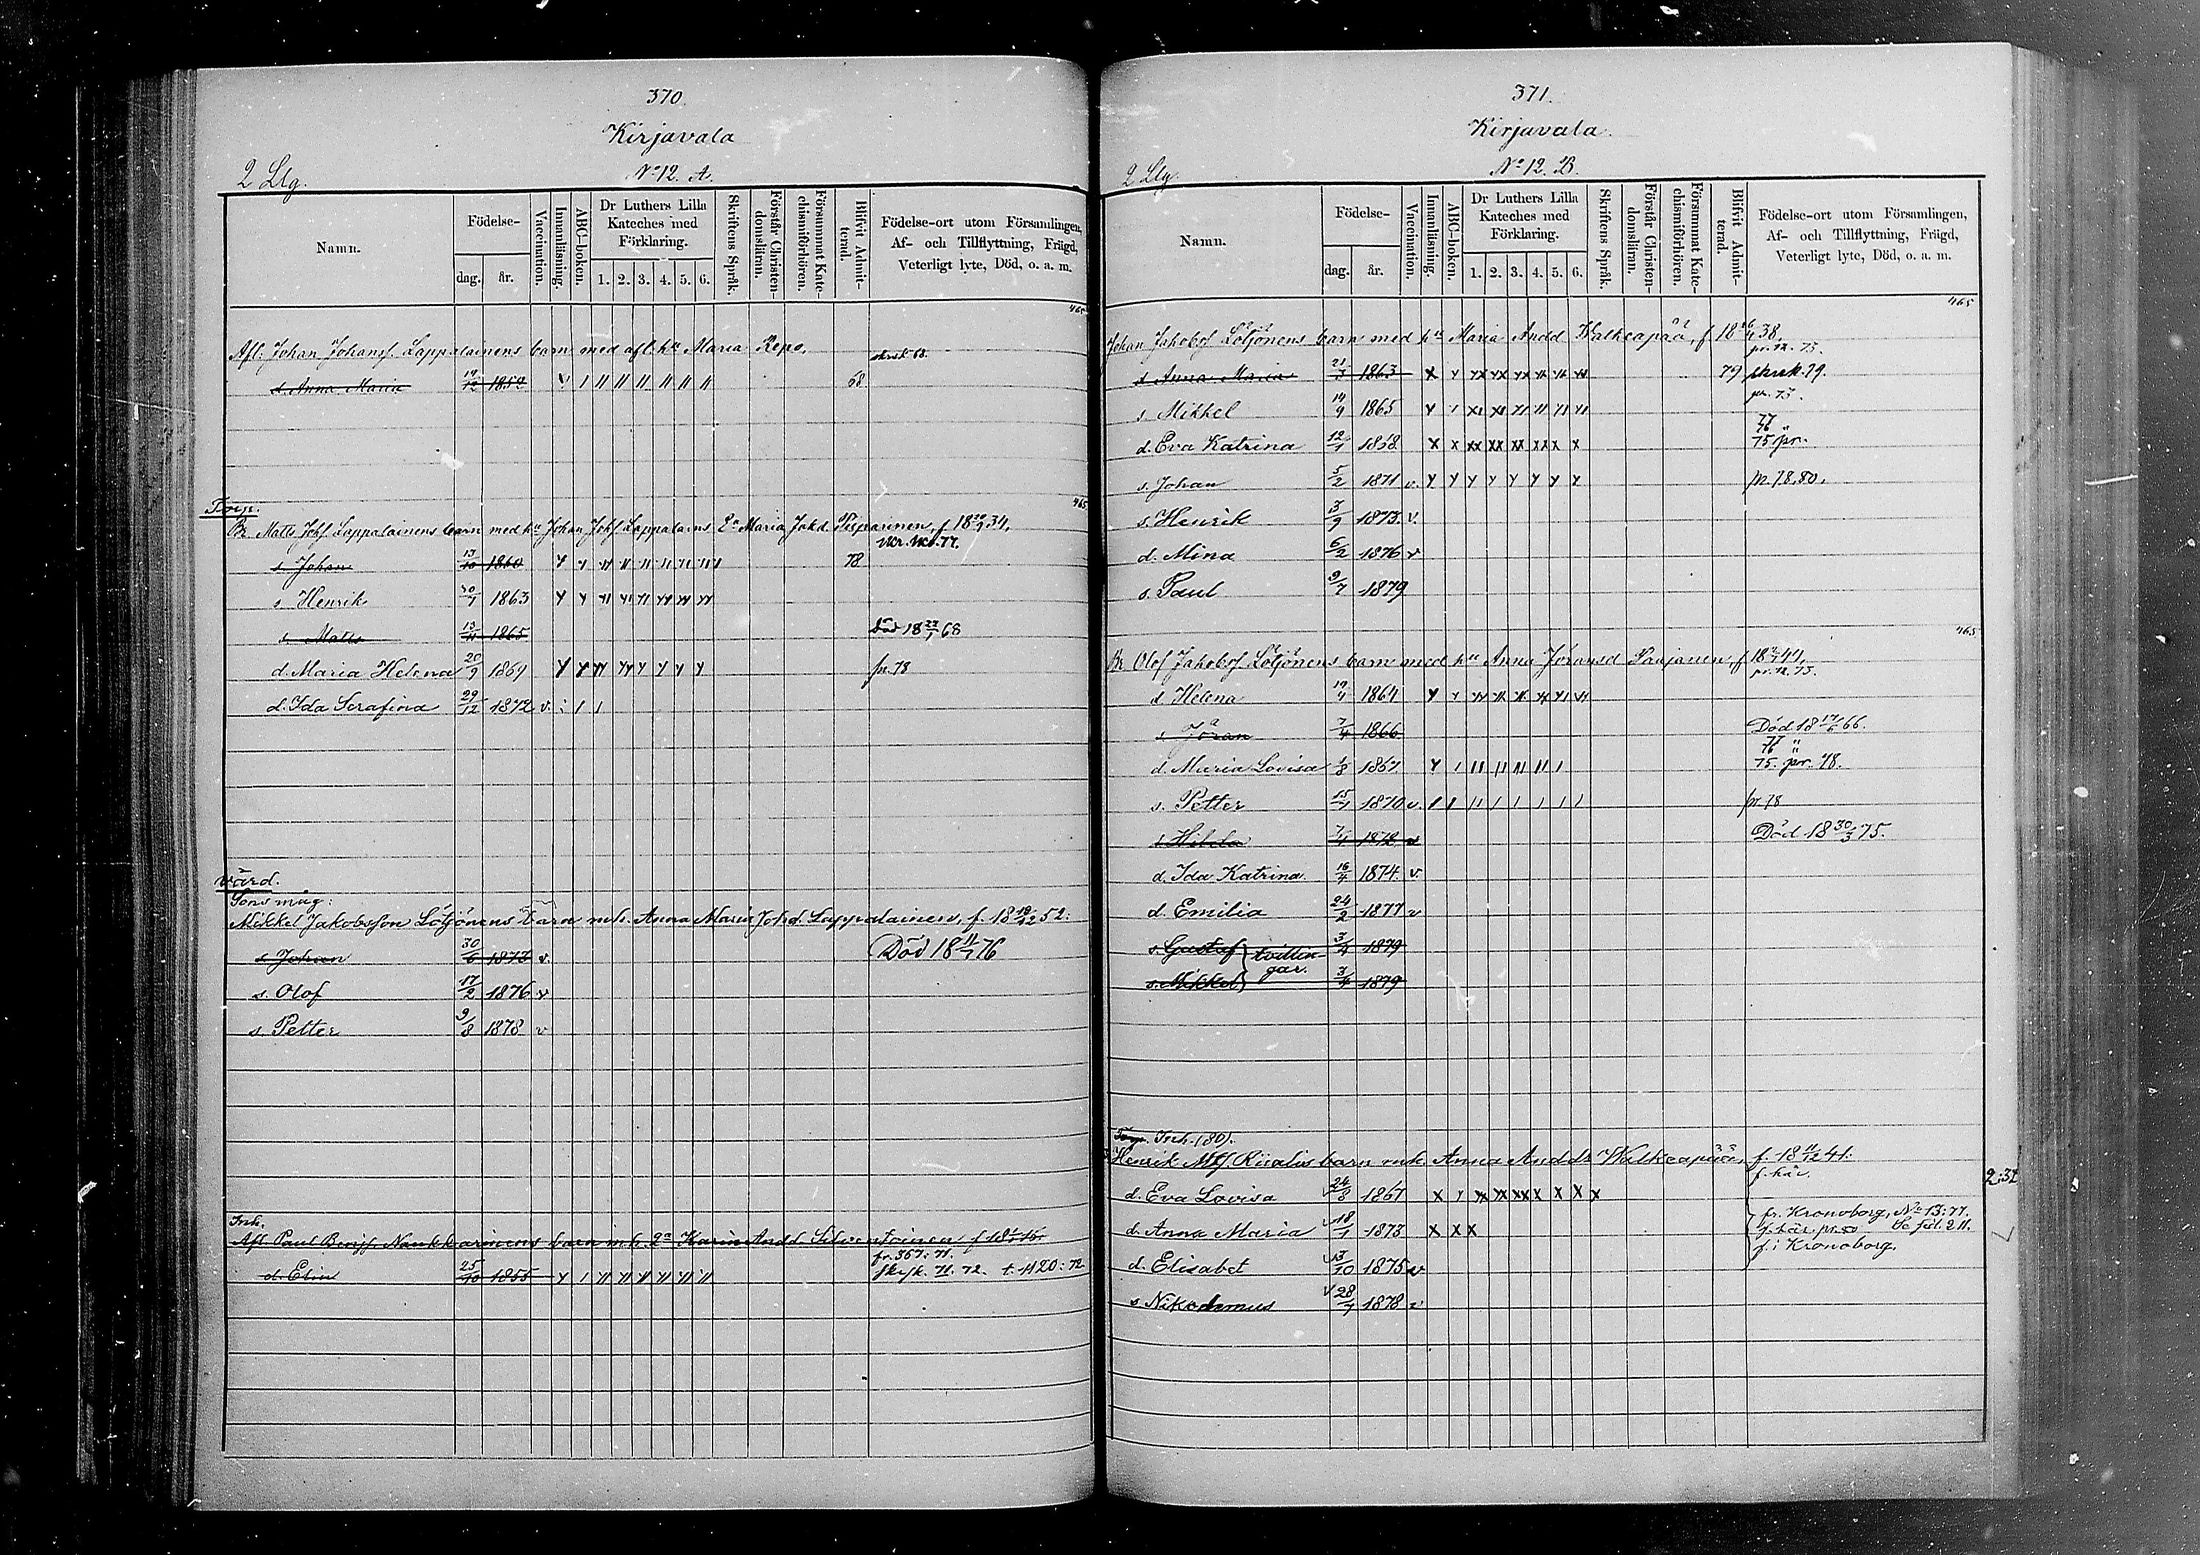 370.
Kirjavala
2 Llg.
No 12. A.
Namn.
Födelse-
dag.
år.
Vaccination.
Innanläsning.
ABC-boken.
Dr Luthers Lilla Kateches med Förklaring.
1. 2. 3. 4. 5. 6.
Skriftens Språk.
Förstår Christendomsläran.
Försummat Katechismiförhören.
Blifvit Admitterad.
Födelse-ort utom Församlingen, Af- och Tillflyttning, Frägd, Veterligt lyte, Död, o. a. m.
465
Afl. Johan Johanss. Lappalainens barn med afl. hu Maria Repo,
d. Anna Maria 19/12 1852 68
Torp.
465
Br Matts Johs. Lappalainens barn med hu Johan Johs. Lappalains 2a Maria Jokd. f. 18 34,
s. Johan 13/10 1860 78
s. Henrik 30/1 1863
s. Matts 13/11 1865 Död 18 23/1 68
d. Maria Helena 20/9 1869 pr. 78
d. Ida Serafina 29/12 1872 v.
Värd.
Sons måg:
Mikkel Jakobsson Lötjönens barn m.h. Anna Maria Johd. Lappalainen, f. 18 19/12 52:
s. Johan 30/6 1873 v. Död 18 11/1 76
s. Olof 17/2 1876 v
s. Petter 9/8 1878 v
Inh.
Afl. Paul Bengts. Naukkarinens barn m.h. 2a Karin Andd. Silventoinen
fr. 367: 71.
d. Elin 25/10 1855 71. 72. t. 1120: 72
371.
Kirjavala.
2 Llg.
No 12. B.
Namn.
Födelse-
dag.
år.
Vaccination.
Innanläsning.
ABC-boken.
Dr Luthers Lilla Kateches med Förklaring.
1. 2. 3. 4. 5. 6.
Skriftens Språk.
Förstår Christendomsläran.
Försummat Katechismiförhören.
Blifvit Admitterad.
Födelse-ort utom Församlingen, Af- och Tillflyttning, Frägd, Veterligt lyte, Död, o. a. m.
465
Johan Jakobss Lötjönens barn med hu Maria Andd Walkeapää, f 18 38.
d. Anna Maria 21/3 1863 79
s. Mikkel 14/9 1865
d. Eva Katrina 12/1 1868 75 pr.
s. Johan 5/2 1871 v. pr. 78, 80.
s. Henrik 3/9 1873. v.
d. Mina 6/2 1876 v
s. Paul 9/7 1879
465
Br Olof Jakobss Lötjönens barn med hu Anna Jöransd Paajanen, f 18 41,
d. Helena 19/4 1864
s. Jöran 7/4 1866 Död 18 17/6 66.
d. Maria Lovisa 1/8 1867 75. pr. 78.
s. Petter 15/1 1870 v. pr. 78
s. Hilda 7/4 1872 v Död 18 30/3 75.
d. Ida Katrina 16/4 1874. v
d. Emilia 24/2 1877 v
s. Gustaf 3/4 1879
tvillingar.
s. Mikkel 3/4 1879
Torp. Inh. (80).
Henrik Mss. Riialis barn m.h. Anna Andds Walkeapää, f. 18 11/12 41.
f. här.
d. Eva Lovisa 24/8 1867 2:32
fr. Kronoborg, No 13: 77.
d. Anna Maria 18/1 1873 f. här.
f. i Kronoborg.
d. Elisabet 13/10 1875 v
s Nikodemus 28/7 1878 v